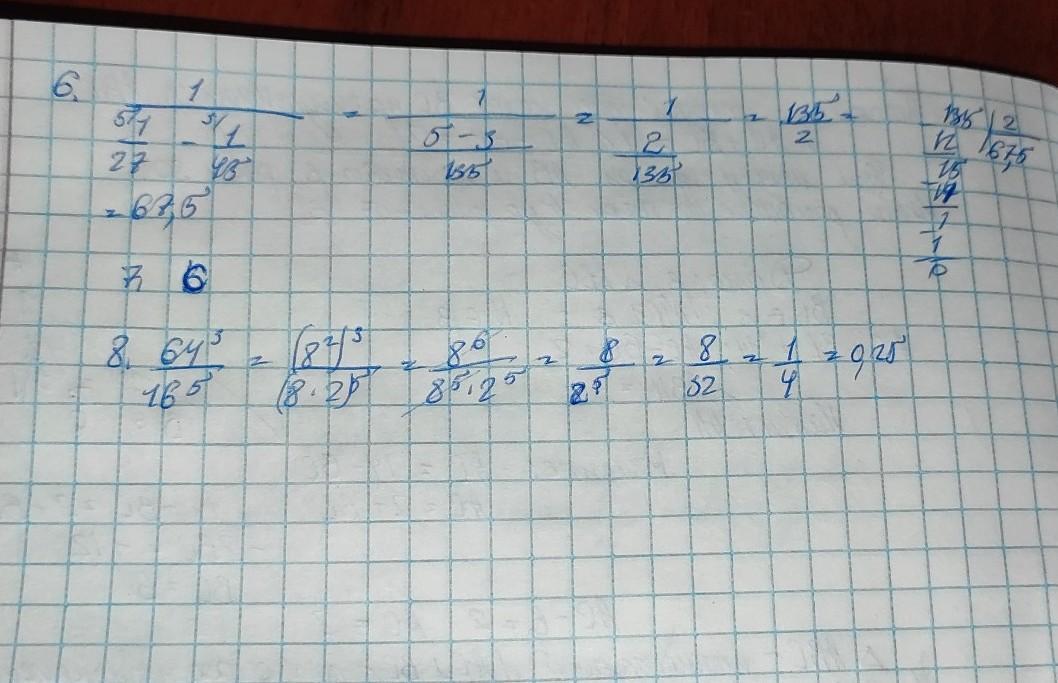 6. 1/(5\1/27 - 3\1/45) = 1/((5-3)/135) = 1/(2/135) = 135/2 =
= 67,5
135 | 2
12 | 67,5
15
14
1
1
0
7. 6
8. 64³/16⁵ = (8²)³/(8·2)⁵ = 8⁶/(8⁵·2⁵) = 8/2⁵ = 8/32 = 1/4 = 0,25